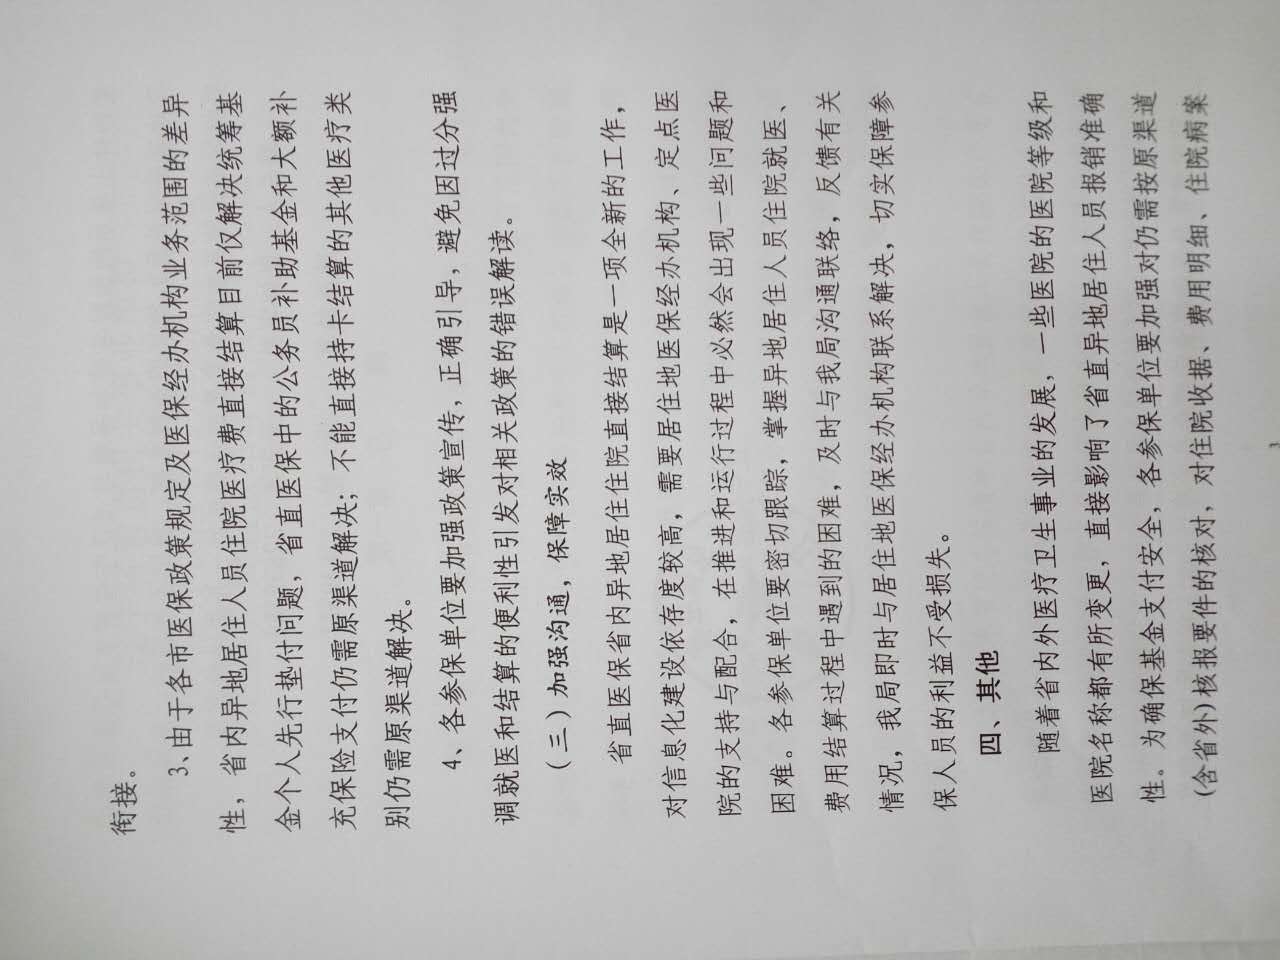 衔接。
3、由于各市医保政策规定及医保经办机构业务范围的差异
性，省内异地居住人员住院医疗费直接结算目前仅解决统筹基
金个人先行垫付问题，省直医保中的公务员补助基金和大额补
充保险支付仍需原渠道解决；不能直接持卡结算的其他医疗类
别仍需原渠道解决。
4、各参保单位要加强政策宣传，正确引导，避免因过分强
调就医和结算的便利性引发对相关政策的错误解读。
（三）加强沟通，保障实效
省直医保省内异地居住住院直接结算是一项全新的工作，
对信息化建设依存度较高，需要居住地医保经办机构、定点医
院的支持与配合，在推进和运行过程中必然会出现一些问题和
困难。各参保单位要密切跟踪，掌握异地居住人员住院就医、
费用结算过程中遇到的困难，及时与我局沟通联络，反馈有关
情况，我局即时与居住地医保经办机构联系解决，切实保障参
保人员的利益不受损失。
四、其他
随着省内外医疗卫生事业的发展，一些医院的医院等级和
医院名称都有所变更，直接影响了省直异地居住人员报销准确
性。为确保基金支付安全，各参保单位要加强对仍需按原渠道
(含省外)核报要件的核对，对住院收据、费用明细、住院病案
3